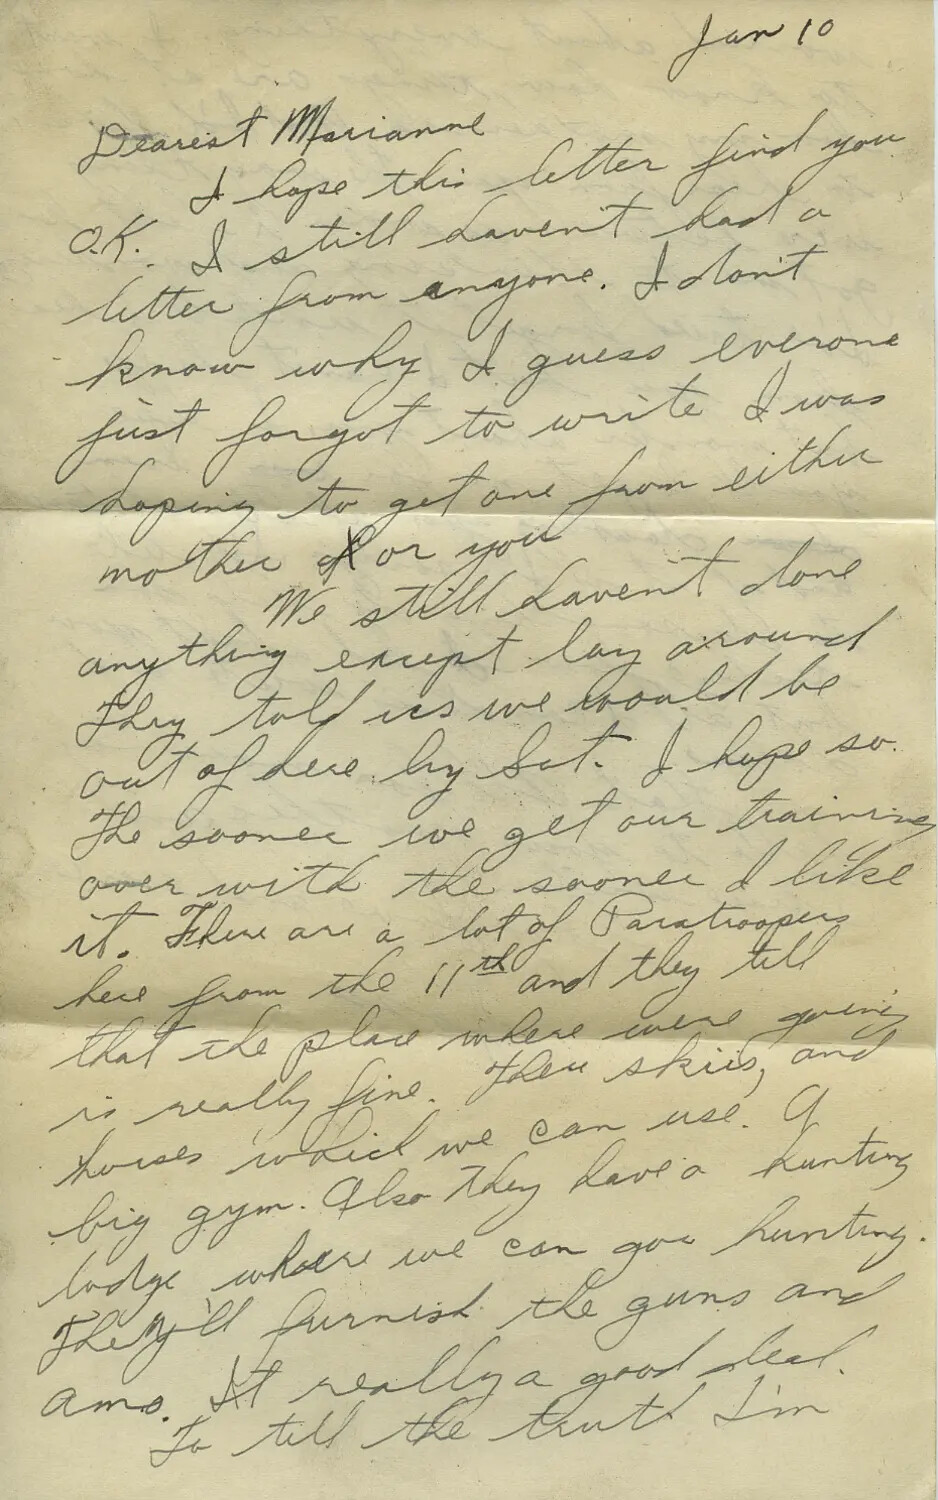 Jan 10
Dearest Marianne
I hope this letter find you
O.K. I still haven't had a
letter from anyone. I don't
know why I guess everone
just forgot to write I was
hoping to get one from either
mother or you
We still haven't done
anything except lay around
They told us we would be
out of here by Sat. I hope so.
The sooner we get our training
over with the sooner I like
it. There are a lot of Paratroopers
here from the 11th and they tell
that the place where were going
is really fine. Ther skiis, and
horses which we can use. A
big gym. Also they have a hunting
lodge where we can goe hunting.
They'll furnish the guns and
amo. It really a good deal.
To tell the truth I'm